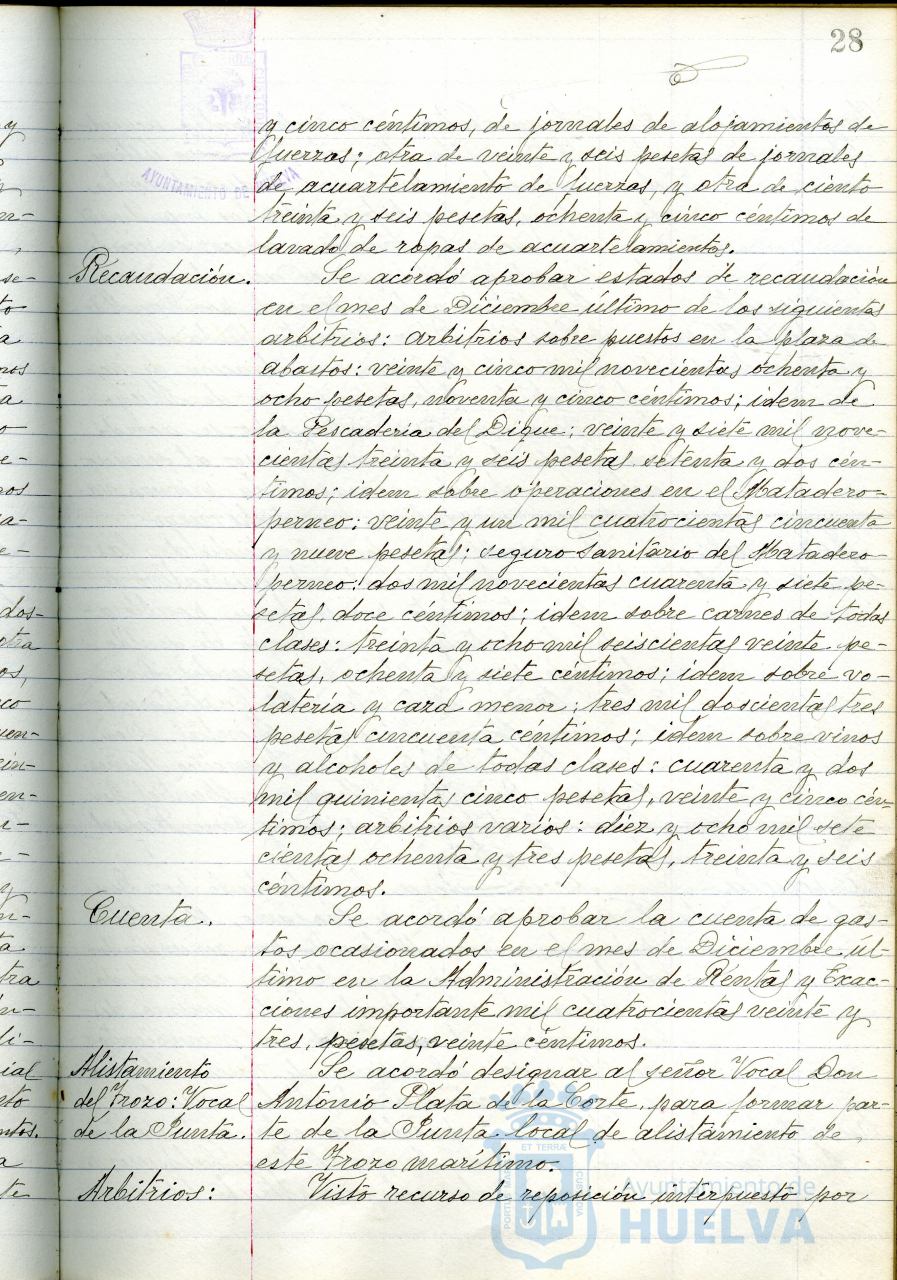 28
y cinco céntimos, de jornales de alojamientos de
fuerzas; otra de veinte y seis pesetas de jornales
de acuartelamiento de fuerzas, y otra de ciento
treinta y seis pesetas, ochenta y cinco céntimos de
lavado de ropas de acuartelamientos.
Recaudación. Se acordó aprobar estados de recaudación
en el mes de Diciembre último de los siguientes
arbitrios: arbitrios sobre puestos en la plaza de
abastos: veinte y cinco mil novecientas ochenta y
ocho pesetas, noventa y cinco céntimos; idem de
la Pescaderia del Dique: veinte y siete mil nove-
cientas treinta y seis pesetas setenta y dos cén-
timos; idem sobre operaciones en el Matadero=
perneo: veinte y un mil cuatrocientas cincuenta
y nueve pesetas; seguro sanitario del Matadero-
perneo: dos mil novecientas cuarenta y siete pe-
setas, doce céntimos; idem sobre carnes de todas
clases: treinta y ocho mil seiscientas veinte pe-
setas, ochenta y siete céntimos; idem sobre vo-
latería y caza menor: tres mil doscientas tres
pesetas cincuenta céntimos; idem sobre vinos
y alcoholes de todas clases: cuarenta y dos
mil quinientas cinco pesetas, veinte y cinco cén-
timos; arbitrios varios: diez y ocho mil sete
cientas ochenta y tres pesetas, treinta y seis
céntimos.
Cuenta. Se acordó aprobar la cuenta de gas-
tos ocasionados en el mes de Diciembre úl-
timo en la Administración de Rentas y Exac-
ciones importante mil cuatrocientas veinte y
tres, pesetas, veinte céntimos.
Alistamiento Se acordó designar al señor Vocal Don
del Trozo: Vocal Antonio Plata de la Corte, para formar par-
de la Junta. te de la Junta local de alistamiento de
este Trozo marítimo.
Arbitrios: Visto recurso de reposición interpuesto por
AYUNTAMIENTO DE HUELVA
Ayuntamiento de
HUELVA